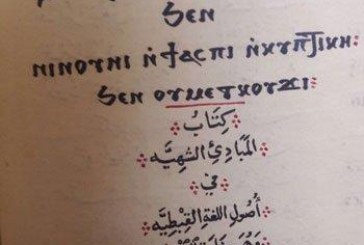 ϧⲉⲛ
ⲛⲓⲛⲟⲩⲛⲓ ⲛ̀ϯⲁⲥⲡⲓ ⲛ̀ⲭⲩⲡⲧⲓⲕⲏ:
ϧⲉⲛ ⲟⲩⲙⲉⲧⲕⲟⲩϫⲓ:
كِتَابُ
المَبَادِئِ الشَهِيَّه
فِي
أُصُولِ اللغَةِ القِبْطِيَّه